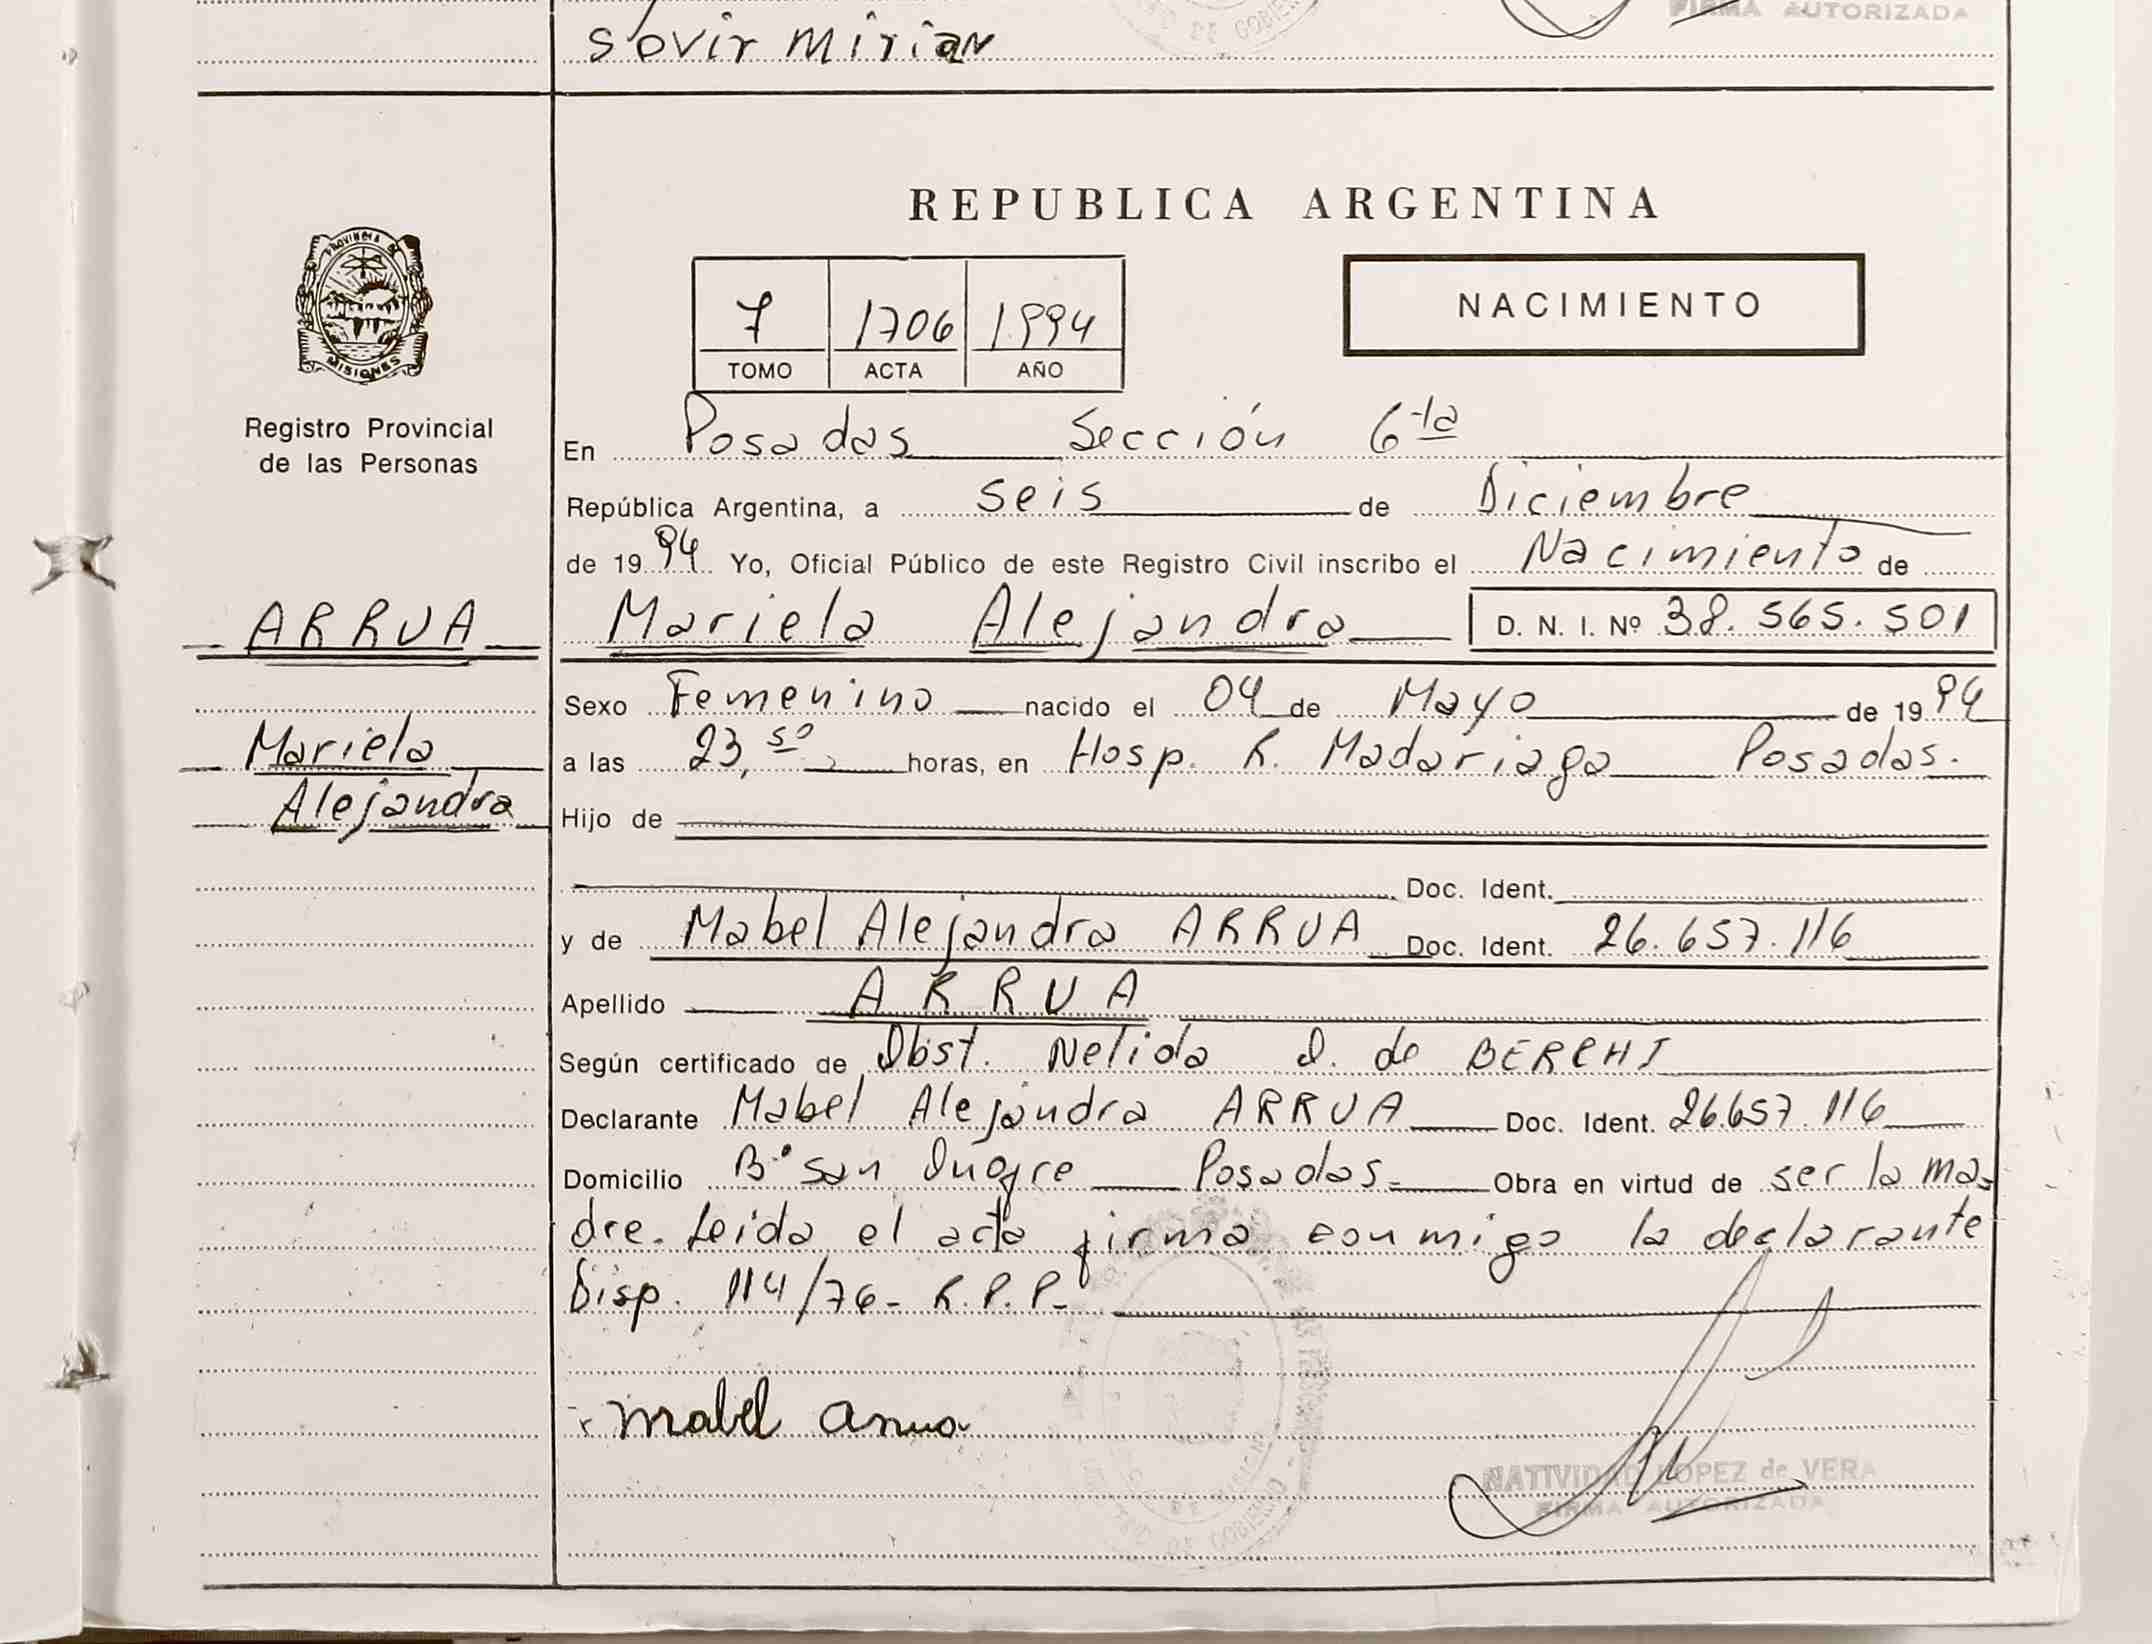 FIRMA AUTORIZADA
Sovir Mirian
REPUBLICA ARGENTINA
PROVINCIA DE
MISIONES
7 1706 1994
TOMO ACTA AÑO
NACIMIENTO
Registro Provincial
de las Personas
En Posadas Sección 6ta
República Argentina, a seis de Diciembre
de 1994 Yo, Oficial Público de este Registro Civil inscribo el Nacimiento de
ARRUA
Mariela Alejandra D. N. I. Nº 38.565.501
Sexo Femenino nacido el 04 de Mayo de 1994
Mariela
a las 23,50 horas, en Hosp. R. Madariaga Posadas.
Alejandra
Hijo de
Doc. Ident.
y de Mabel Alejandra ARRUA Doc. Ident. 26.657.116
Apellido ARRUA
Según certificado de Obst. Nelida O. de BERCHI
Declarante Mabel Alejandra ARRUA Doc. Ident. 26.657.116
Domicilio Bº San Posadas- Obra en virtud de ser la ma-
dre. Leida el acta firma conmigo la declarante
Disp. 114/76- R.P.P-
Mabel Arrua
NATIVIDAD LOPEZ de VERA
FIRMA AUTORIZADA